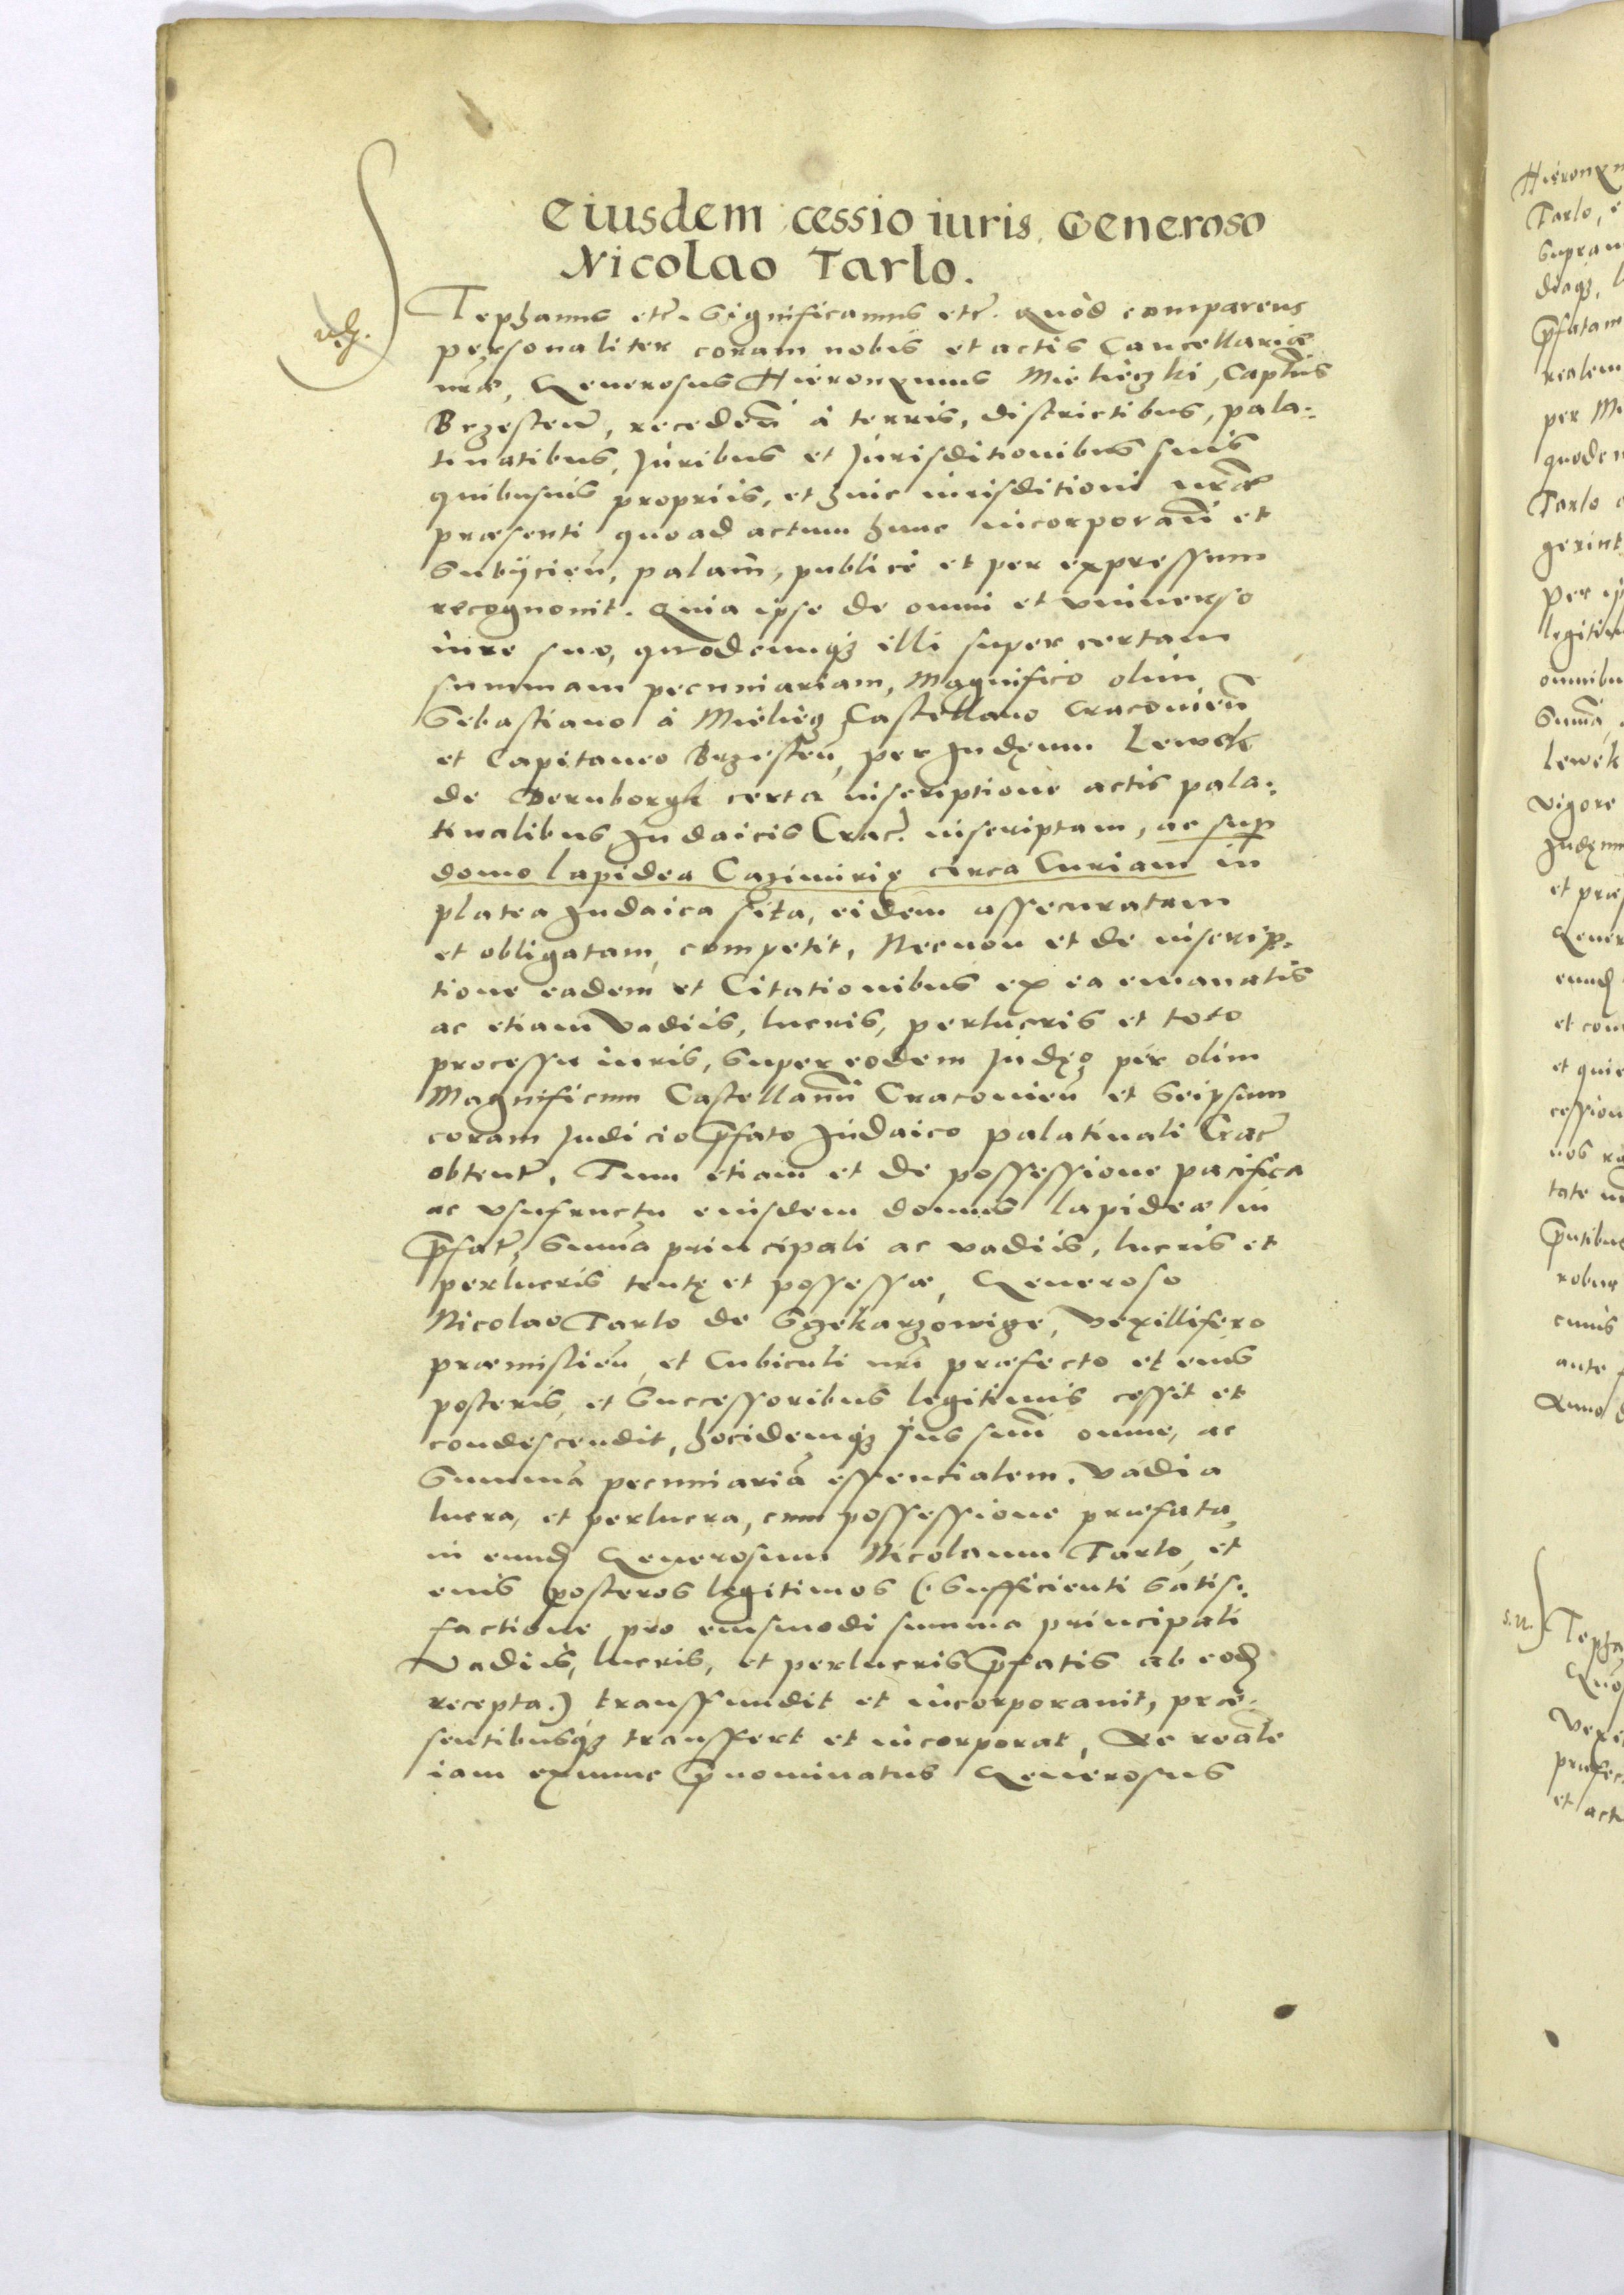 Eiusdem cessio iuris Generoso
Nicolao Tarlo.
Stephanus etc̃. Significamus etc̃. Quòd comparens
personaliter coram nobis et actis Cancellariæ
nr̃æ, Generosus Hieronymus Mieliezki, Capt̃us
Brzesteñ, recedeñ à terris, districtibus, pala-
tinatibus, Juribus et Jurisditionibus suis
quibusuis propriis, et huic iurisditioni nr̃æ
præsenti quoad actum hunc incorporañ et
Subÿcieñ, palam, publicè et per expressum
recognouit. Quia ipse de omni et vniuerso
iure suo, quodcumq̃ illi super certam
summam pecuniariam, Magnifico olim
Sebastiano à Mieliez Castellano Cracouieñ
et Capitaneo Brzesteñ, per Judęum Lewek
de Bernborgk certa inscriptione actis pala-
tinalibus Judaicis Crac̃. inscriptam, ac sup̃
domo lapidea Cazimirię circa Curiam in
platea Judaica sita, eidem assecuratam
et obligatam, competit, Necnon et de inscrip-
tione eadem et Citationibus ex ea emanatis
ac etiam Vadiis, lucris, perlucris et toto
processu iuris, Super eodem Judęo per olim
Magnificum Castellanũ Cracouieñ et Seipsum
coram Judicio p̃fato Judaico palatinali Crac̃
obtent̃, Tum etiam et de possessione pacifica
ac vsufructu eiusdem domus lapideæ in
p̃fat̃, Sum̃a principali ac vadiis, lucris et
perlucris tentę et possessæ, Generoso
Nicolao Tarlo de Szekarzowize, Vexillifero
præmislieñ, et Cubiculi nr̃i præfecto et eius
posteris, et Successoribus legitimis cessit et
condescendit, hocidemq̃ Jus suũ omne, ac
Summã pecuniariã essencialem, vadia
lucra, et perlucra, cum possessione præfata,
in eund̃ Generosum Nicolaum Tarlo, et
eius posteros legitimos (Sufficienti Satis-
factione pro eiusmodi summa principali
Vadiis, lucris, et perlucris p̃fatis ab eod̃
recepta.) transfundit et incorporauit, præ-
sentibusq̃ transfert et incorporat, De reale
iam exnunc p̃nominatus Generosus